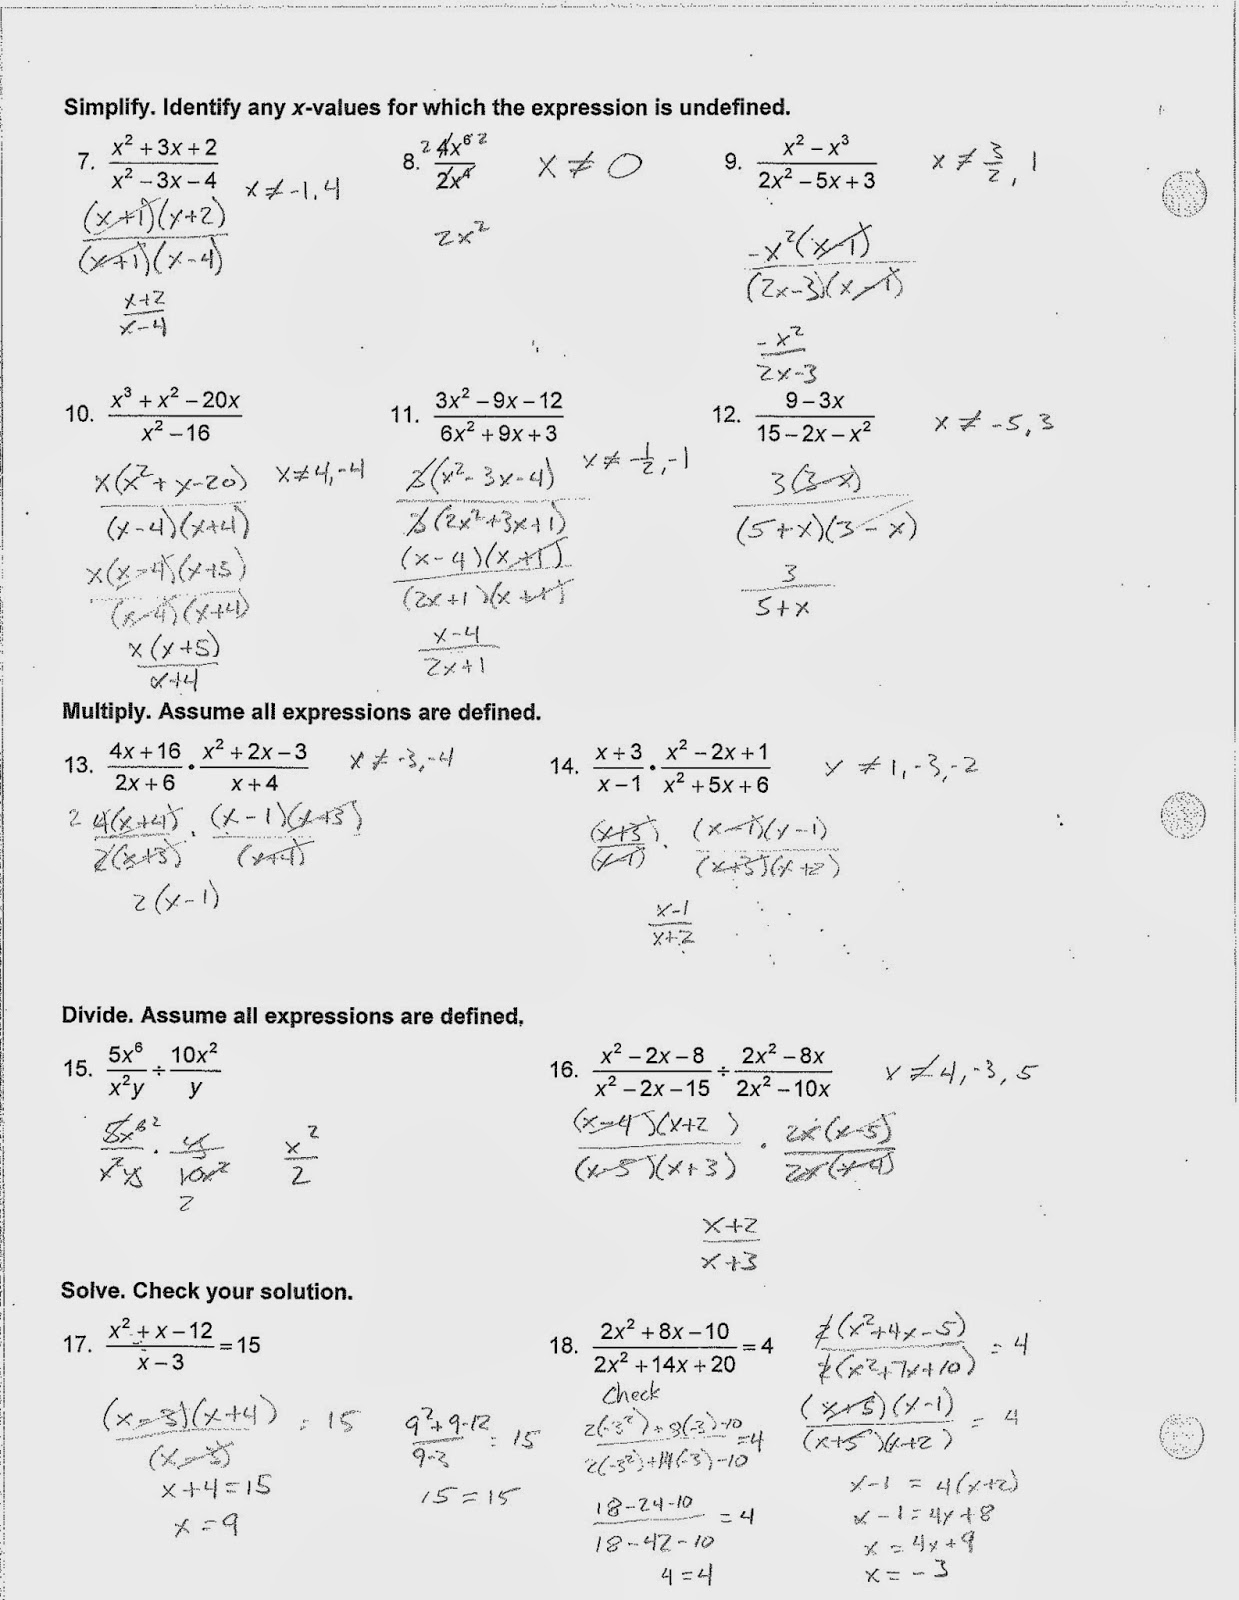 Simplify. Identify any x-values for which the expression is undefined.
7. (x² + 3x + 2)/(x² − 3x − 4) x ≠ -1, 4
(x+1)(x+2)/(x+1)(x-4)
x+2/x-4
8. 4x⁶/2x⁴ 2 2 x ≠ 0
2x²
9. (x² − x³)/(2x² − 5x + 3) x ≠ 3/2, 1
-x²(x-1)/(2x-3)(x-1)
-x²/2x-3
10. (x³ + x² − 20x)/(x² − 16)
x(x²+x-20)/(x-4)(x+4) x ≠ 4, -4
x(x-4)(x+5)/(x-4)(x+4)
x(x+5)/x+4
11. (3x² − 9x − 12)/(6x² + 9x + 3) x ≠ -1/2, -1
3(x²-3x-4)/3(2x²+3x+1)
(x-4)(x+1)/(2x+1)(x+1)
x-4/2x+1
12. (9 − 3x)/(15 − 2x − x²) x ≠ -5, 3
3(3-x)/(5+x)(3-x)
3/5+x
Multiply. Assume all expressions are defined.
13. (4x + 16)/(2x + 6) • (x² + 2x − 3)/(x + 4) x ≠ -3, -4
2 4(x+4)/2(x+3) · (x-1)(x+3)/(x+4)
2(x-1)
14. (x + 3)/(x − 1) • (x² − 2x + 1)/(x² + 5x + 6) x ≠ 1, -3, -2
(x+3)/(x-1) · (x-1)(x-1)/(x+3)(x+2)
x-1/x+2
Divide. Assume all expressions are defined.
15. 5x⁶/x²y ÷ 10x²/y
5x⁶ ²/x²y · y/10x² 2 x²/2
16. (x² − 2x − 8)/(x² − 2x − 15) ÷ (2x² − 8x)/(2x² − 10x) x ≠ 4, -3, 5
(x-4)(x+2)/(x-5)(x+3) · 2x(x-5)/2x(x-4)
x+2/x+3
Solve. Check your solution.
17. (x² + x − 12)/(x − 3) = 15
(x-3)(x+4)/(x-3) = 15
x+4=15
x=9
9²+9-12/9-3 = 15
15=15
18. (2x² + 8x − 10)/(2x² + 14x + 20) = 4
2(x²+4x-5)/2(x²+7x+10) = 4
(x+5)(x-1)/(x+5)(x+2) = 4
x-1 = 4(x+2)
x-1=4x+8
x=4x+9
x=-3
Check
2(-3²)+8(-3)-10/2(-3²)+14(-3)-10 =4
18-24-10/18-42-10 =4
4=4